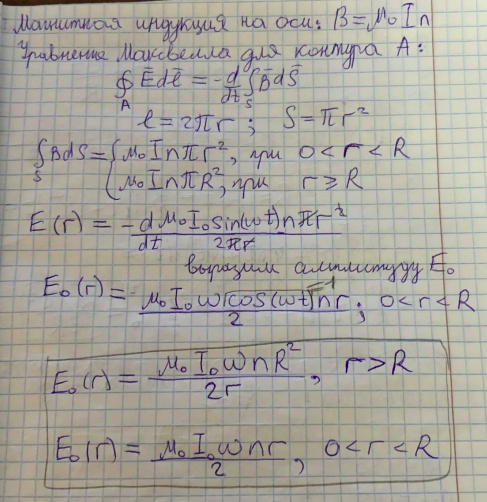 Магнитная индукция на оси: B = μ₀ I n
Уравнение Максвелла для контура A:
∮_A E̅ dℓ̅ = -d/dt ∫_S B̅ dS̅
ℓ = 2πr ; S = πr²
∫_S B dS = { μ₀ I n π r², при 0 < r < R
μ₀ I n π R², при r ≥ R
E(r) = -d μ₀ I₀ sin(ωt) n π r² / dt 2πr
выразим амплитуду E₀
E₀(r) = μ₀ I₀ ω cos(ωt) n r / 2 ; 0 < r < R
E₀(r) = μ₀ I₀ ω n R² / 2r , r > R
E₀(r) = μ₀ I₀ ω n r / 2 , 0 < r < R